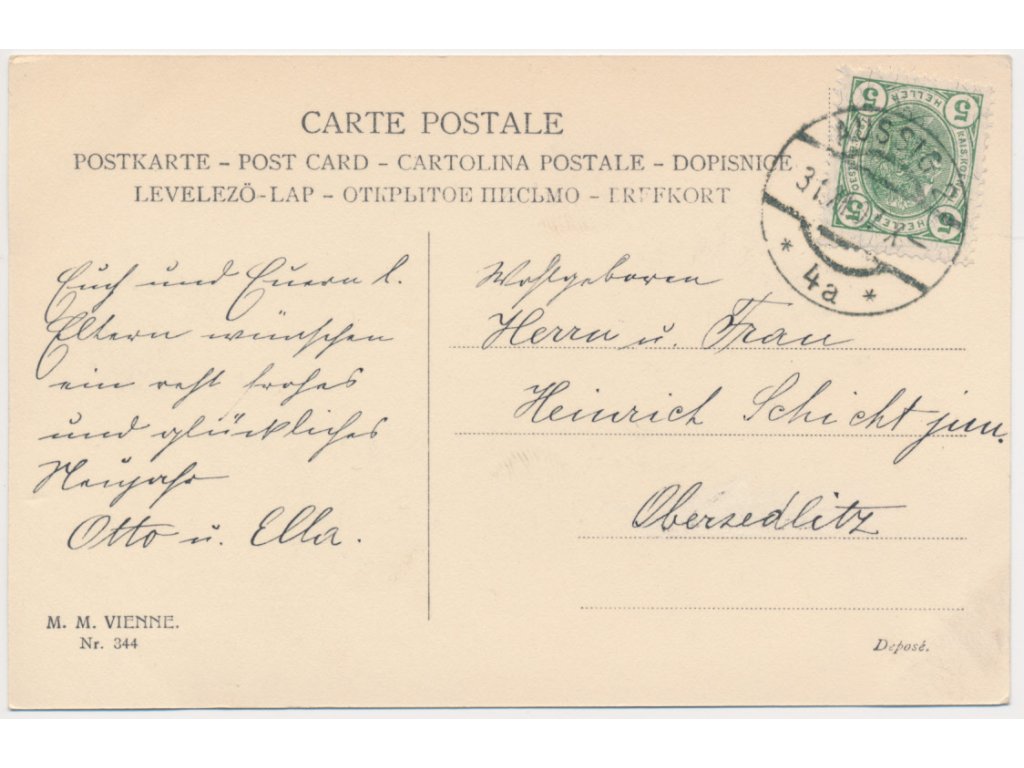 CARTE POSTALE
POSTKARTE – POST CARD – CARTOLINA POSTALE – DOPISNICE
LEVELEZÖ-LAP – ОТКРЫТОЕ ПИСЬМО – BREFKORT
5 HELLER 5
5 HELLER 5
AUSSIG
4a
Euch und Euern l.
Eltern wünschen
ein recht frohes
und glückliches
Neujahr
Otto u. Ella.
Wohlgeboren
Herrn u. Frau
Heinrich Schicht jun.
Obersedlitz
M. M. VIENNE.
Nr. 344
Deposé.